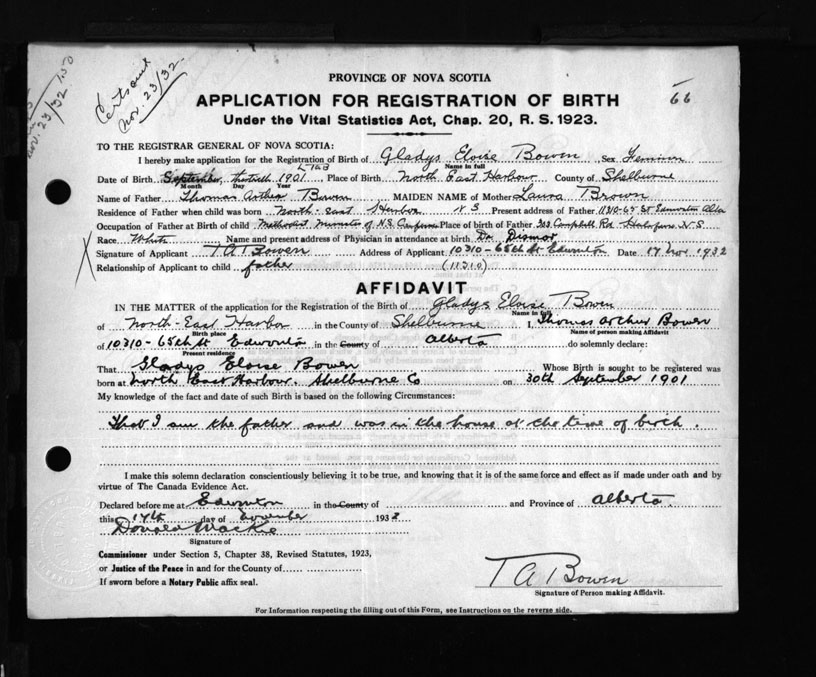 Nov. 23/32 1.50
Certs out
Nov. 23/32
66
PROVINCE OF NOVA SCOTIA
APPLICATION FOR REGISTRATION OF BIRTH
Under the Vital Statistics Act, Chap. 20, R. S. 1923.
TO THE REGISTRAR GENERAL OF NOVA SCOTIA:
I hereby make application for the Registration of Birth of Gladys Eloise Bowen Sex
Name in full
Date of Birth September thirtieth 1901 Place of Birth North East Harbour County of Shelburne
Month Day Year
Name of Father Thomas Arthur Bowen MAIDEN NAME of Mother Laura Brown
Residence of Father when child was born North-east Harbour N S Present address of Father 65 St Edmonton Alba
Occupation of Father at Birth of child Methodist Minister of N.S. Place of birth of Father Campbell Rd Halifax N.S
Race White Name and present address of Physician in attendance at birth Dr.
Signature of Applicant T A Bowen Address of Applicant 10310-65th St Edmonton Date 17 Nov 1932
Relationship of Applicant to child father (11310)
AFFIDAVIT
IN THE MATTER of the application for the Registration of the Birth of Gladys Eloise Bowen
Name in full
of North-East Harbor in the County of Shelburne I, Thomas Arthur Bowen
Birth place Name of person making Affidavit
of 10310-65th St Edmonton in the County of Alberta do solemnly declare:
Present residence
That Gladys Eloise Bowen Whose Birth is sought to be registered was
born at North East Harbour. Shelburne Co on 30th September 1901
My knowledge of the fact and date of such Birth is based on the following Circumstances:
That I am the father and was in the house at the time of birth.
I make this solemn declaration conscientiously believing it to be true, and knowing that it is of the same force and effect as if made under oath and by
virtue of The Canada Evidence Act.
Declared before me at Edmonton in the County of and Province of Alberta.
this 17th day of November 1932
Donald Mackie
Signature of
Commissioner under Section 5, Chapter 38, Revised Statutes, 1923,
or Justice of the Peace in and for the County of
If sworn before a Notary Public affix seal.
T A Bowen
Signature of Person making Affidavit.
For Information respecting the filling out of this Form, see Instructions on the reverse side.